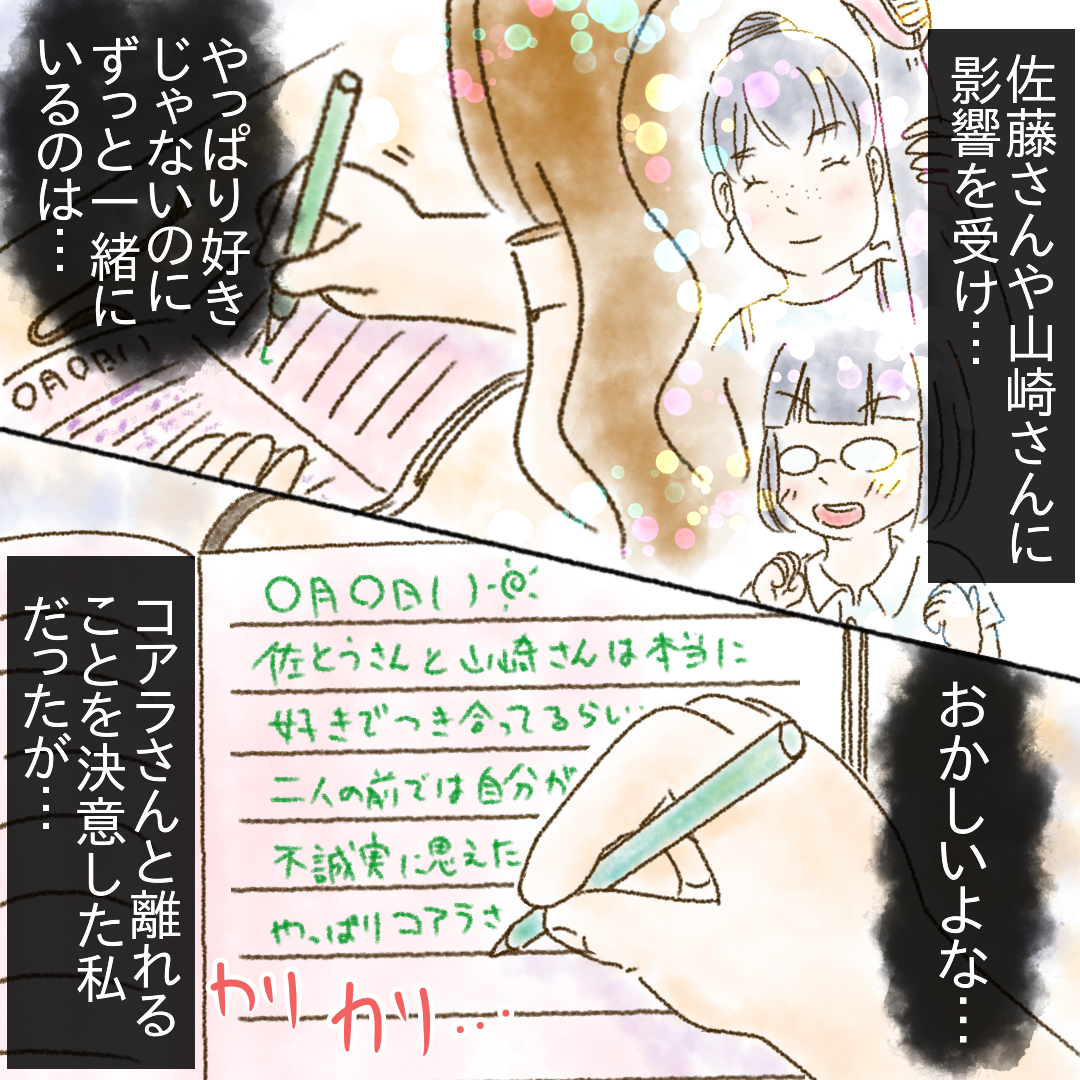 佐藤さんや山崎さんに
影響を受け…
やっぱり好き
じゃないのに
ずっと一緒に
いるのは…
〇月〇日( )
おかしいよな…
〇月〇日( )
佐とうさんと山崎さんは本当に
好きでつき合ってるらしい
二人の前では自分が
不誠実に思えた
やっぱりコアラさ
カリ
カリ…
コアラさんと離れる
ことを決意した私
だったが…